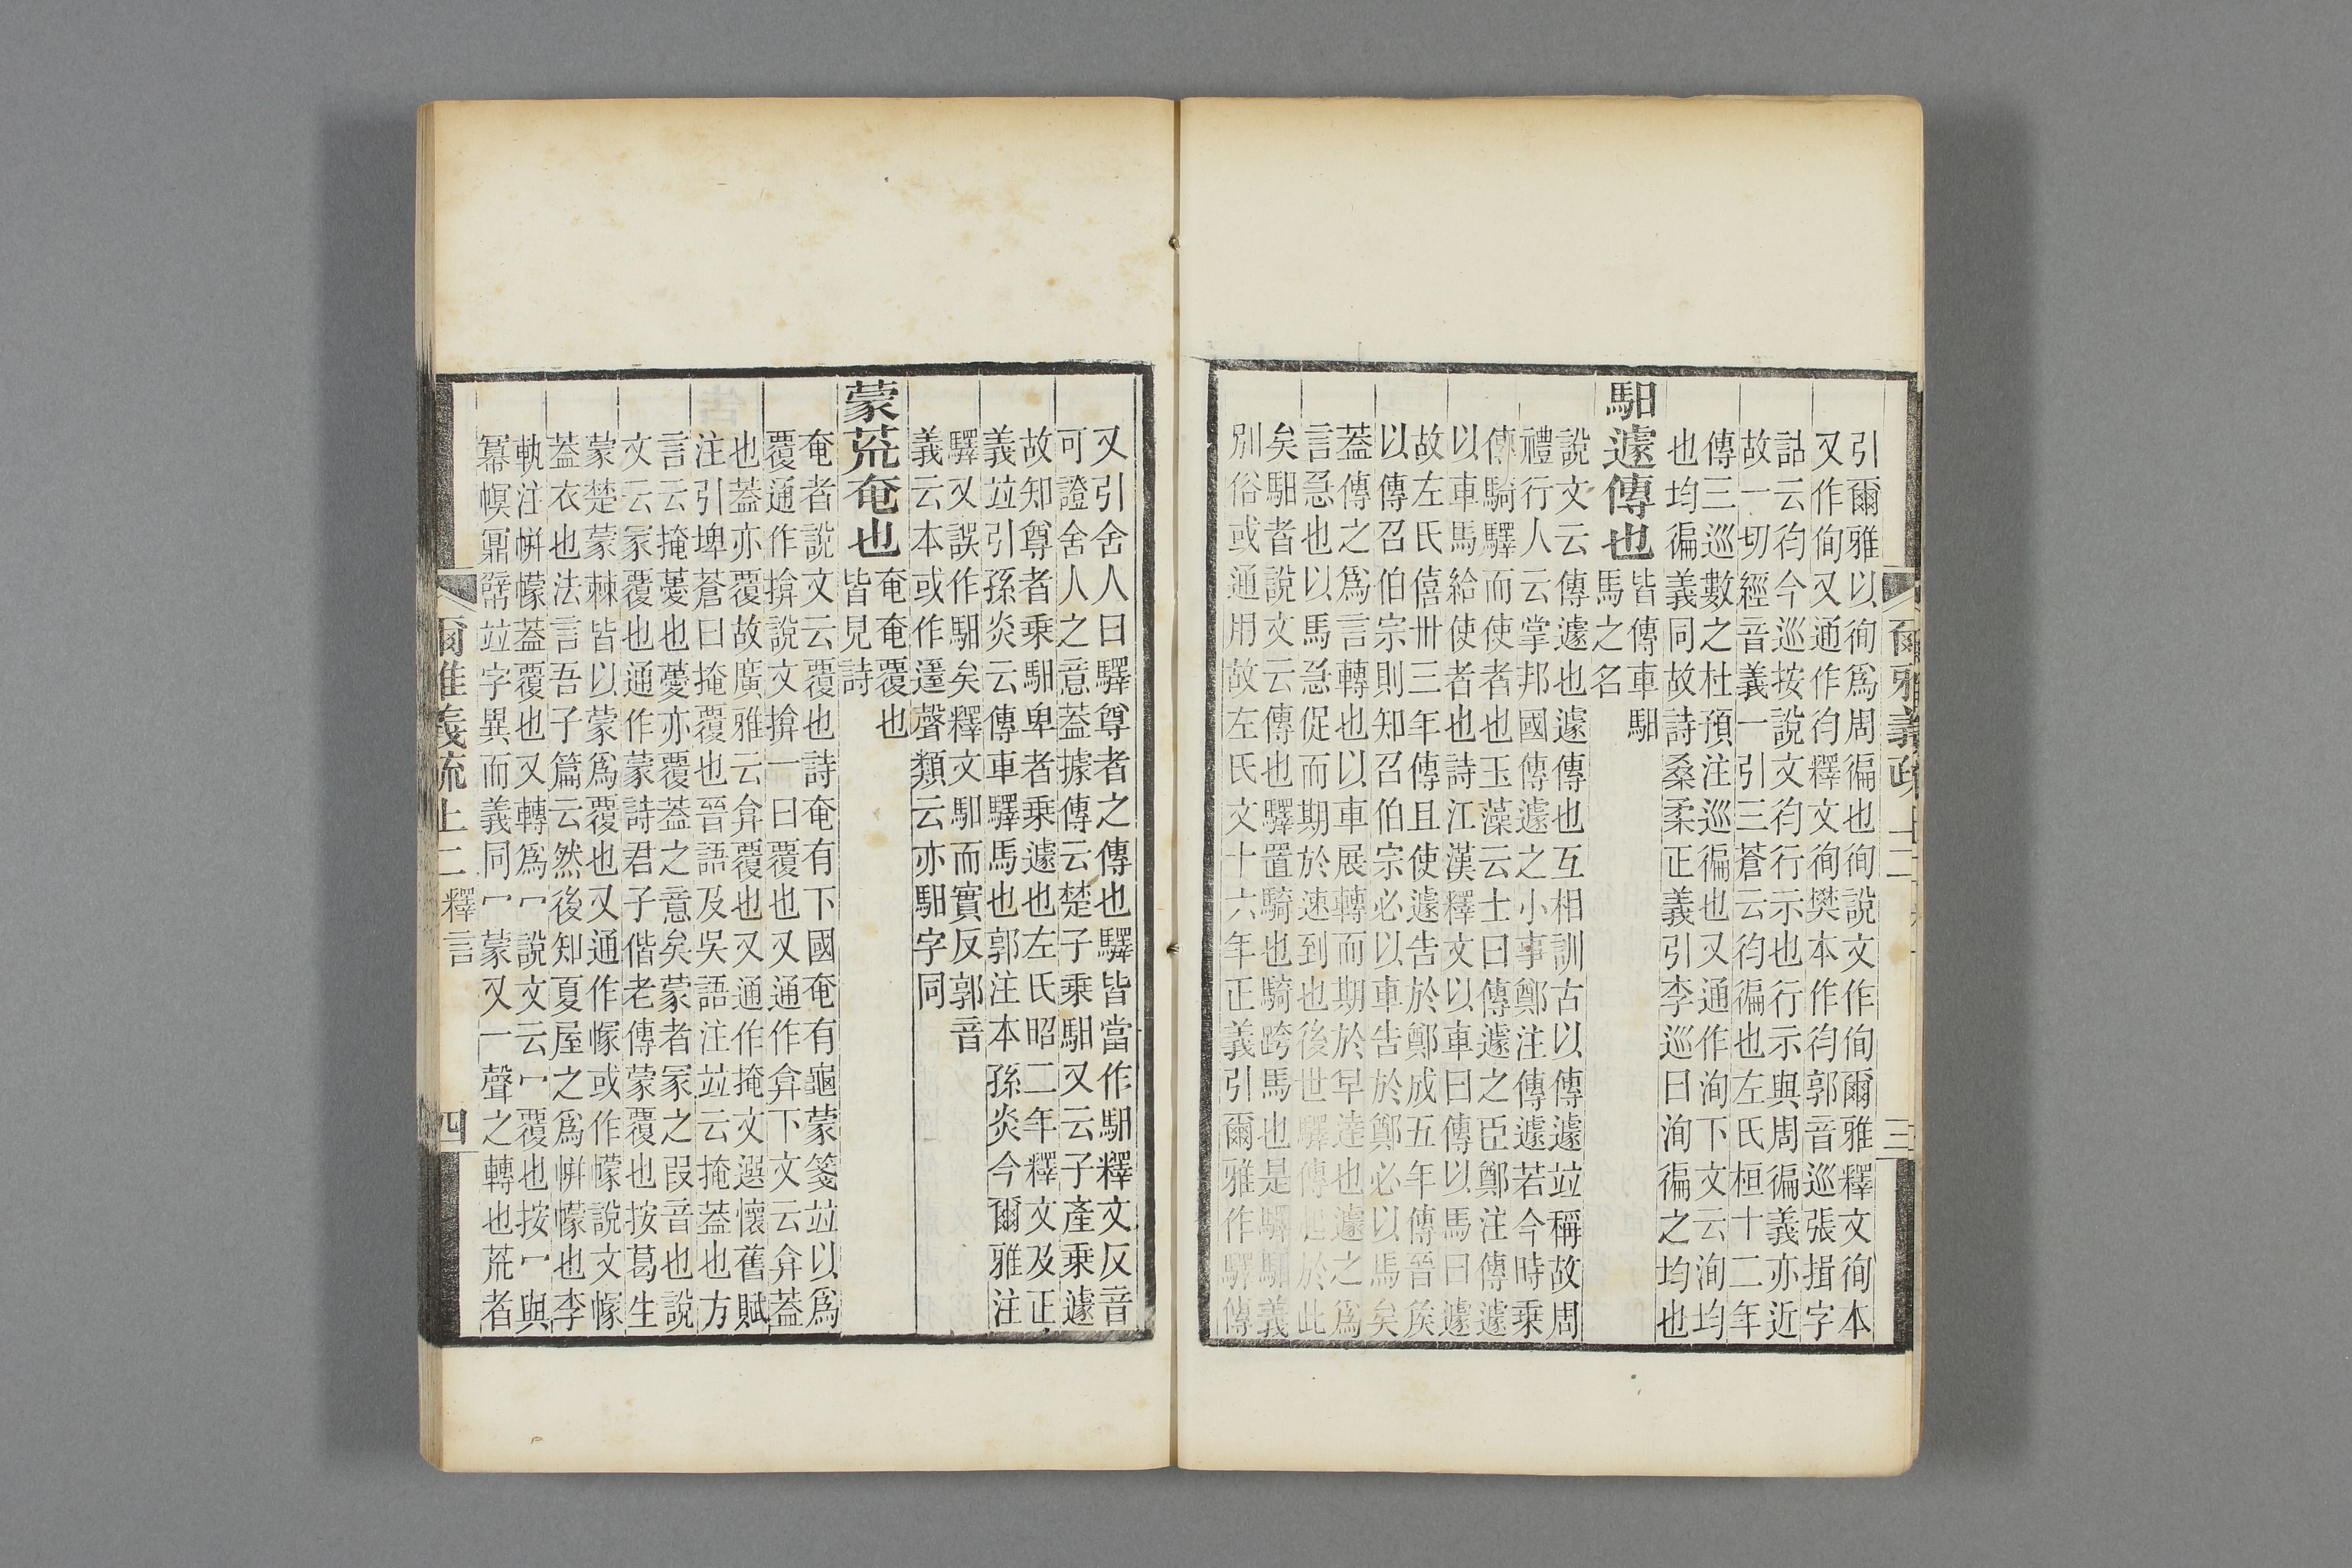 引爾雅以徇爲周徧也徇說文作侚爾雅釋文徇本
又作侚又通作袀釋文徇樊本作袀郭音巡張揖字
詁云袀今巡按說文袀行示也行示與周徧義亦近
故一切經音義一引三蒼云袀徧也左氏桓十二年
傳三巡數之杜預注巡徧也又通作洵下文云洵均
也均徧義同故詩桑柔正義引李巡曰洵徧之均也
馹遽傳也
皆傳車馹
馬之名
說文云傳遽也遽傳也互相訓古以傳遽竝稱故周
禮行人云掌邦國傳遽之小事鄭注傳遽若今時乗
傳騎驛而使者也玉藻云士曰傳遽之臣鄭注傳遽
以車馬給使者也詩江漢釋文以車曰傳以馬曰遽
故左氏僖卅三年傳且使遽告於鄭成五年傳晉矦
以傳召伯宗則知召伯宗必以車告於鄭必以馬矣
蓋傳之爲言轉也以車展轉而期於早達也遽之爲
言急也以馬急促而期於速到也後世驛傳起於此
矣馹者說文云傳也驛置騎也騎跨馬也是驛馹義
別俗或通用故左氏文十六年正義引爾雅作驛傳
爾雅義疏上二
三
又引舍人曰驛尊者之傳也驛皆當作馹釋文反音
可證舍人之意蓋據傳云楚子乗馹又云子產乗遽
故知尊者乗馹卑者乗遽也左氏昭二年釋文及正
義竝引孫炎云傳車驛馬也郭注本孫炎今爾雅注
驛又誤作馹矣釋文馹而實反郭音
義云本或作遷聲類云亦馹字同
蒙荒奄也
奄奄覆也
皆見詩
奄者說文云覆也詩奄有下國奄有龜蒙箋竝以爲
覆通作揜說文揜一曰覆也又通作弇下文云弇蓋
也蓋亦覆故廣雅云弇覆也又通作掩文選懷舊賦
注引埤蒼曰掩覆也晉語及吳語注竝云掩蓋也方
言云掩薆也薆亦覆蓋之意矣蒙者冡之叚音也說
文云冡覆也通作蒙詩君子偕老傳蒙覆也按葛生
蒙楚蒙棘皆以蒙爲覆也又通作幏或作幪說文幏
蓋衣也法言吾子篇云然後知夏屋之爲帡幪也李
軌注帡幪蓋覆也又轉爲冖說文云冖覆也按冖與
冪幎鼏𢄐竝字異而義同冖蒙又一聲之轉也荒者
爾雅義疏上二釋言
四